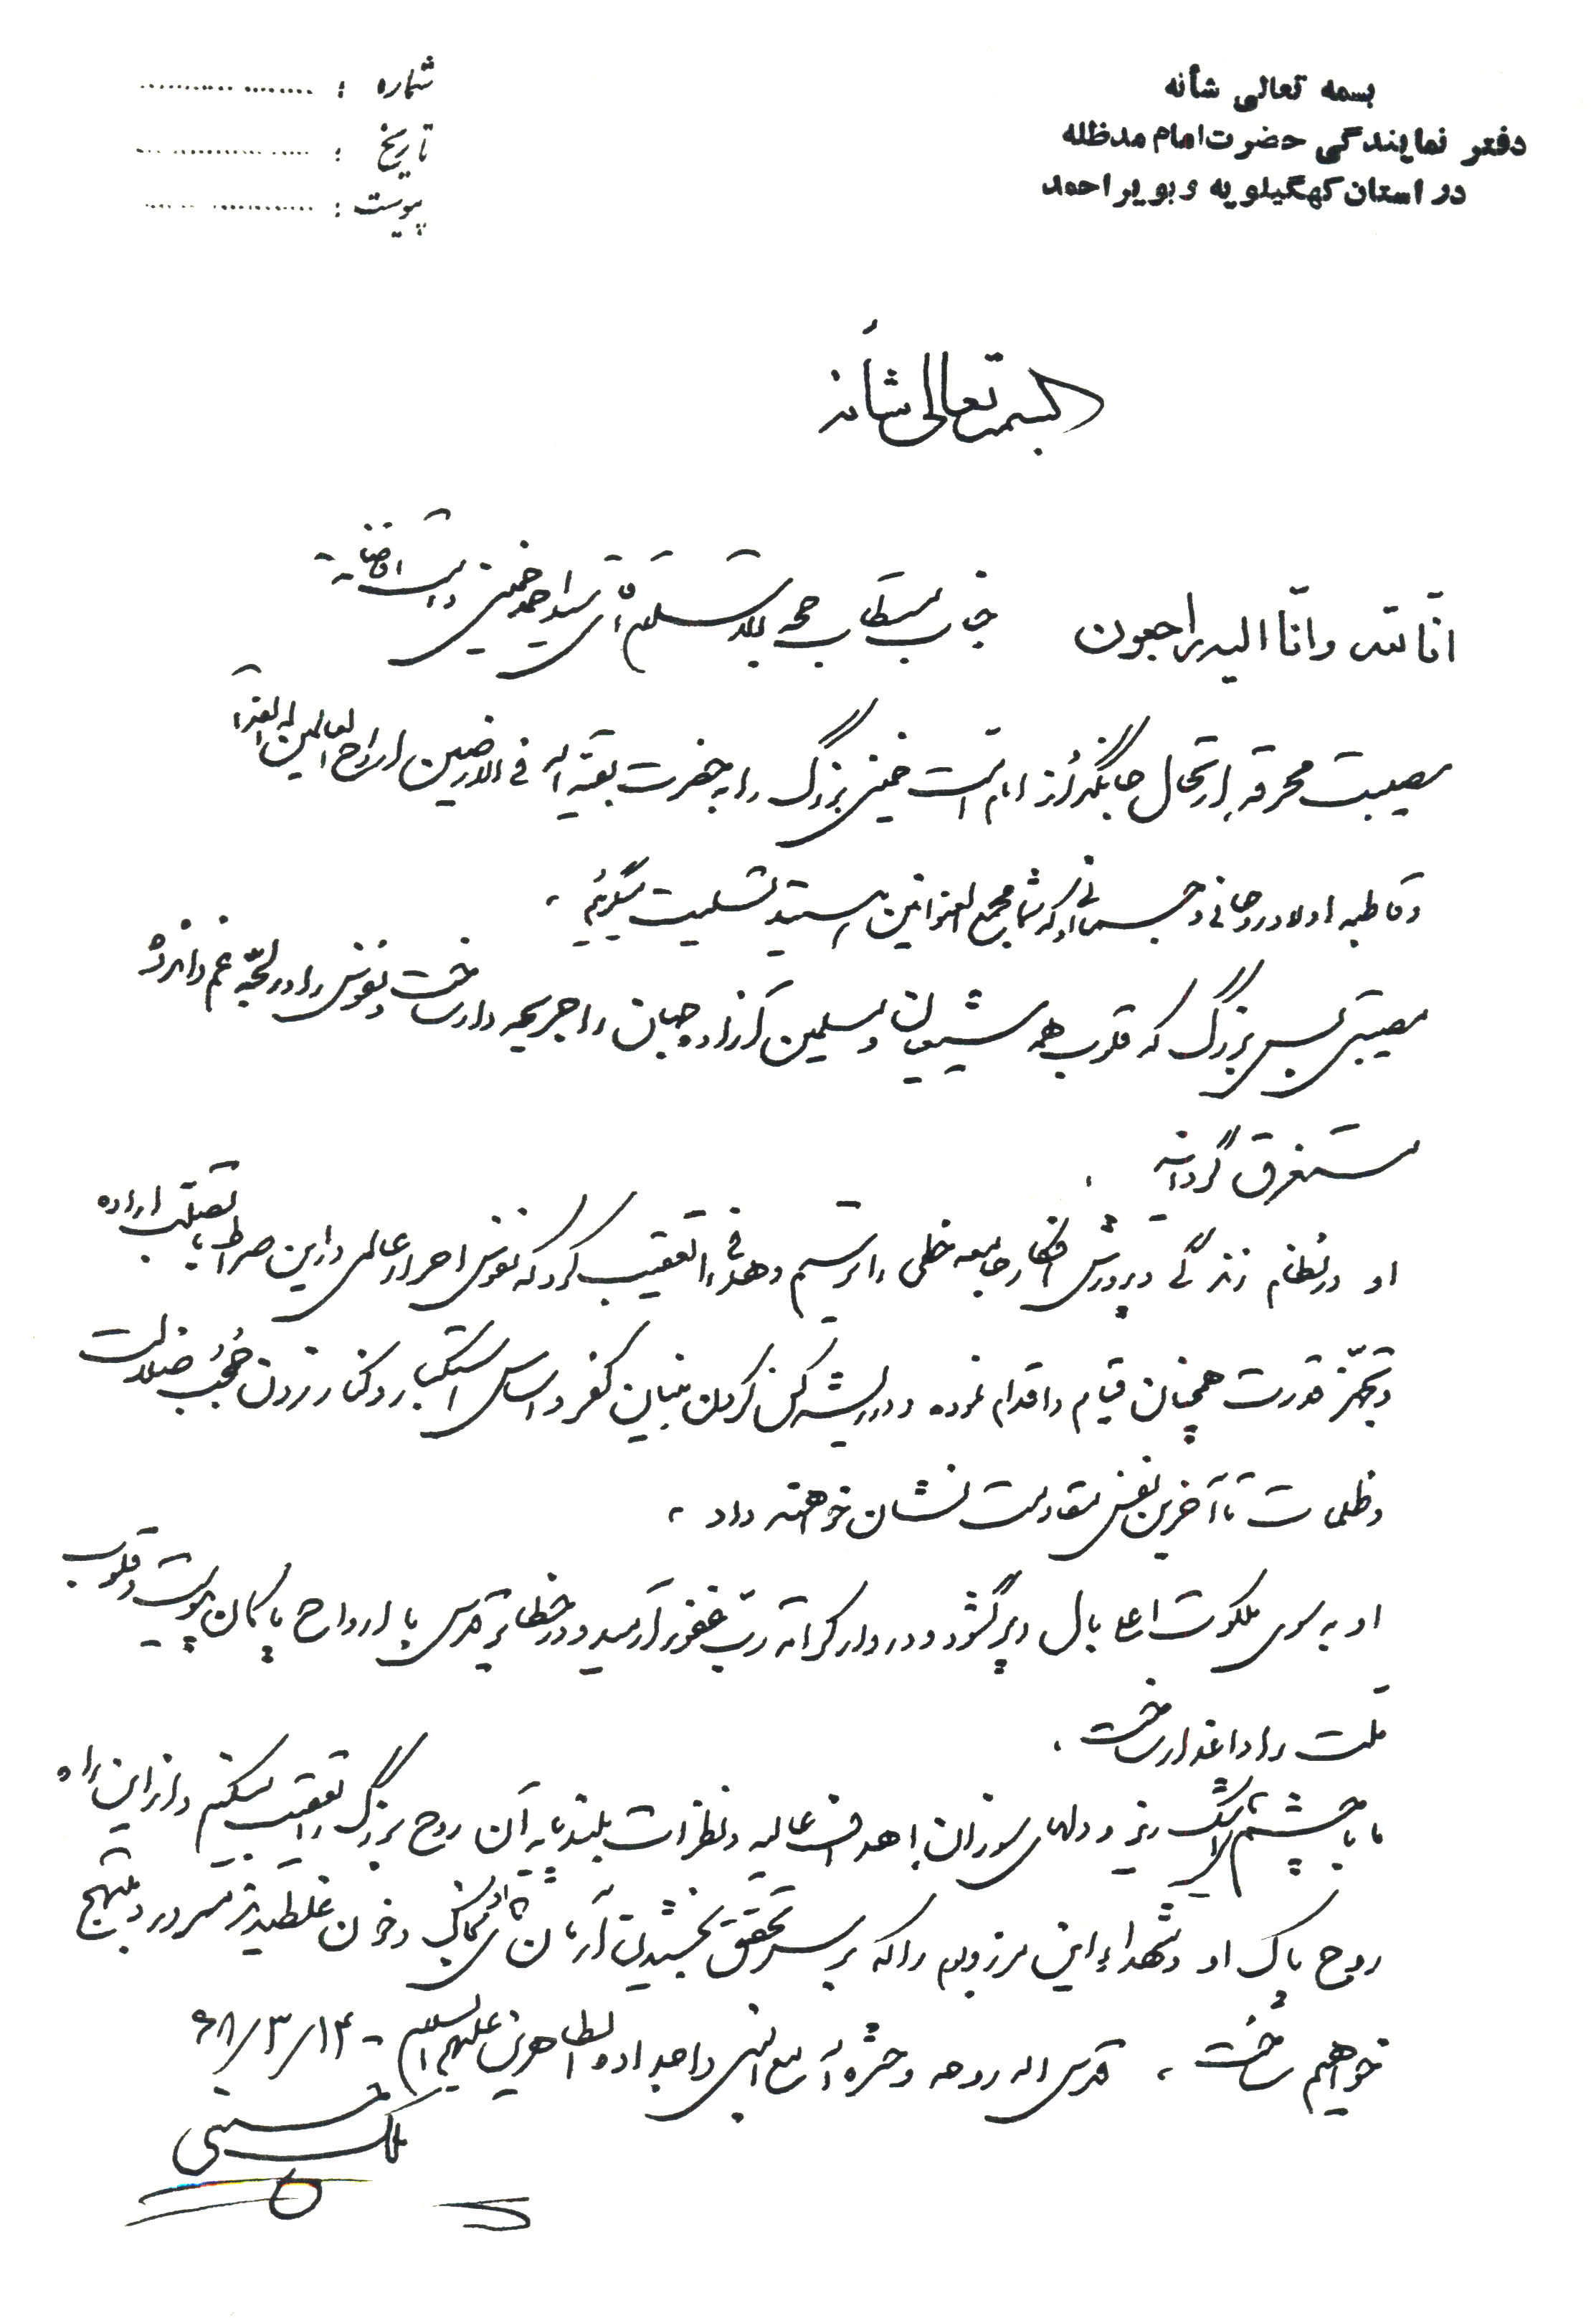 بسمه تعالی شأنه
دفتر نمایندگی حضرت امام مدظله
در استان کهگیلویه و بویراحمد
شماره : ....................
تاریخ : ....................
پیوست : ....................
بسمه تعالی شأنه
انّا لله و انّا الیه راجعون
جناب مستطاب حجة الاسلام آقای سید احمد خمینی دامت افاضاته
مصیبت محرقه ارتحال جانگداز امام امت خمینی بزرگ را به حضرت بقیة اله فی الارضین ارواح العالمین له الفداء
و قاطبه اولاد روحانی و جسمانی او که شما مجمع العنوانین هستید تسلیت میگوئیم .
مصیبتی بس بزرگ که قلوب همه شیعیان و مسلمین آزاده جهان را جریحه دار ساخت و نفوس را در لجّه غم و اندوه
مستغرق گردانید .
او در نظام زندگی و پرورش افکار جامعه خطی را ترسیم و هدفی را تعقیب کرد که نفوس احرار عالمی در این صراط با تصلب اراده
و تجهّز قدرت همچنان قیام و اقدام نموده و در ریشه کن کردن بنیان کفر و اساس استکبار و کنار زدن حُجُب ضلالت
و ظلمات تا آخرین نفس مقاومت نشان خواهند داد .
او به سوی ملکوت اعلا بال و پر گشود و در دار کرامة ربّ غفور آرمید و در حظائر قدس با ارواح پاکان پیوست و قلوب
ملت را داغدار ساخت .
ما با چشم اشک ریز و دلهای سوزان اهداف عالیه و نظرات بلند پایه آن روح بزرگ را تعقیب میکنیم و از این راه
روح پاک او و شهداء این مرز و بوم را که بر سر تحقق بخشیدن آرمان های او در خاک و خون غلطیدند مسرور و مبتهج
خواهیم ساخت . قدس اله روحه و حشره اله مع النبی و اجداده الطاهرین علیهم السلام - ۶۸/۳/۱۴
ملک حسینی